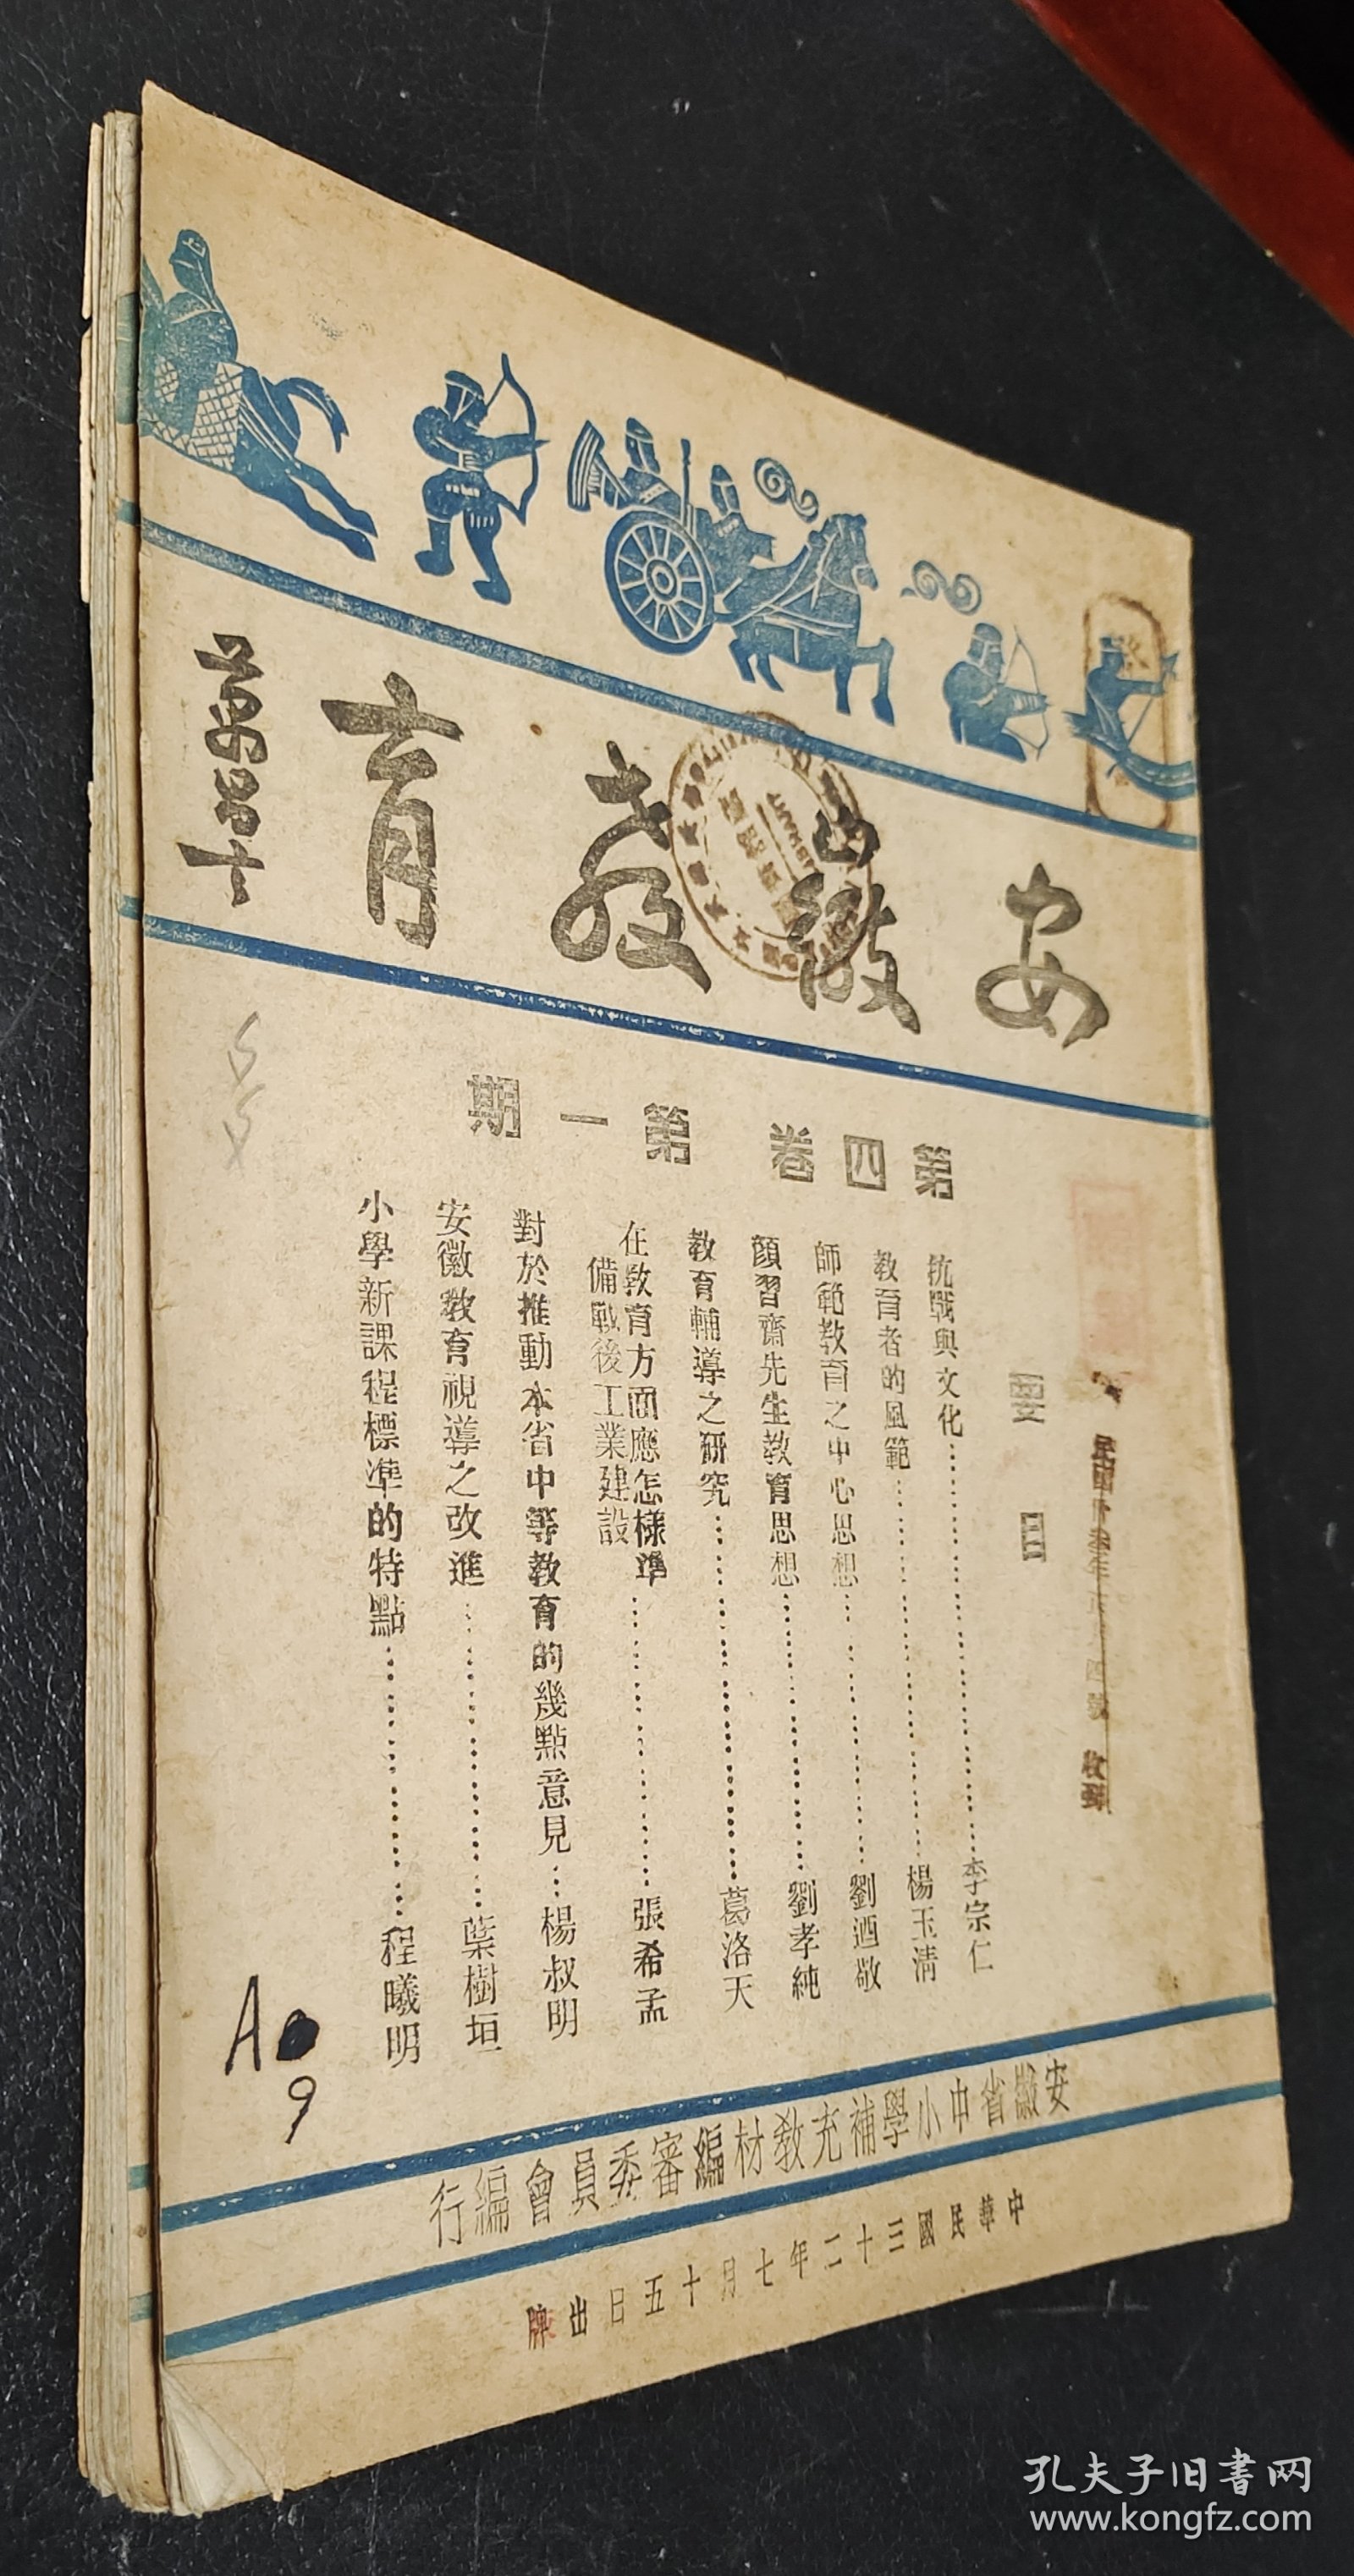 安徽教育
萬昌十
第四卷 第一期
要目
抗戰與文化…………李宗仁
教育者的風範…………楊玉清
師範教育之中心思想…………劉迺敬
顏習齋先生教育思想…………劉孝純
教育輔導之研究…………葛洛天
在教育方面應怎樣準
備戰後工業建設…………張希孟
對於推動本省中等教育的幾點意見…楊叔明
安徽教育視導之改進…………葉樹垣
小學新課程標準的特點…………程曦明
安徽省中小學補充教材編審委員會編行
中華民國三十二年七月十五日出牌
收到
A
9
孔夫子旧书网
www.kongfz.com